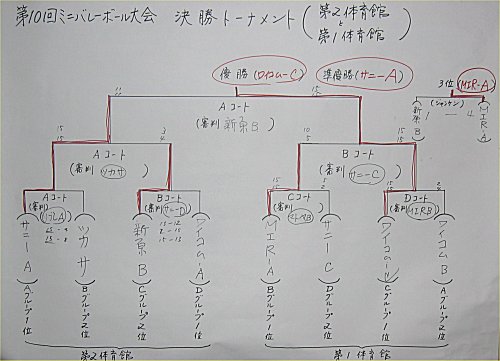 第10回ミニバレーボール大会 決勝トーナメント (第2体育館と第1体育館)
優勝 (ワイコムーC) 準優勝 (サニーA) 3位 (MIR-A)
Aコート
(審判 新原B)
(ジャンケン)
1 — 4
新原B
MIRA
15
15
3
4
Aコート
(審判 ツカサ)
10
5
15
15
Bコート
(審判 サニーC)
Aコート
(審判
Bコート
(審判 サニーD)
Cコート
(審判
Dコート
(審判 MIRB)
サニーA
ツカサ
新原B
ワイコムーA
MIR-A
サニーC
ワイコムーC
ワイコムB
Aグループ1位
Bグループ2位
Cグループ2位
Dグループ1位
Bグループ1位
Dグループ2位
Cグループ1位
Aグループ2位
第2体育館
第1体育館